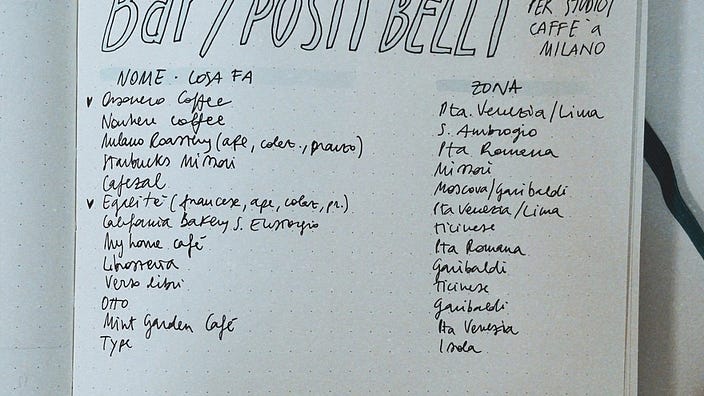 Bar / POSTI BELLI
PER STUDIO /
CAFFÈ a
MILANO
NOME · COSA FA
ZONA
Orsonero Coffee
Pta. Venezia/Lima
Nowhere coffee
S. Ambrogio
Milano Roastery (ape, colaz., pranzo)
Pta Romana
Starbucks Missori
Missori
Cafezal
Moscova/Garibaldi
Egalité (francese, ape, colaz, pr.)
Pta Venezia/Lima
California Bakery S. Eustorgio
Ticinese
My home café
Pta Romana
Libosteria
Garibaldi
Verso libri
Ticinese
OTTO
Garibaldi
Mint Garden Café
Pta Venezia
Type
Isola